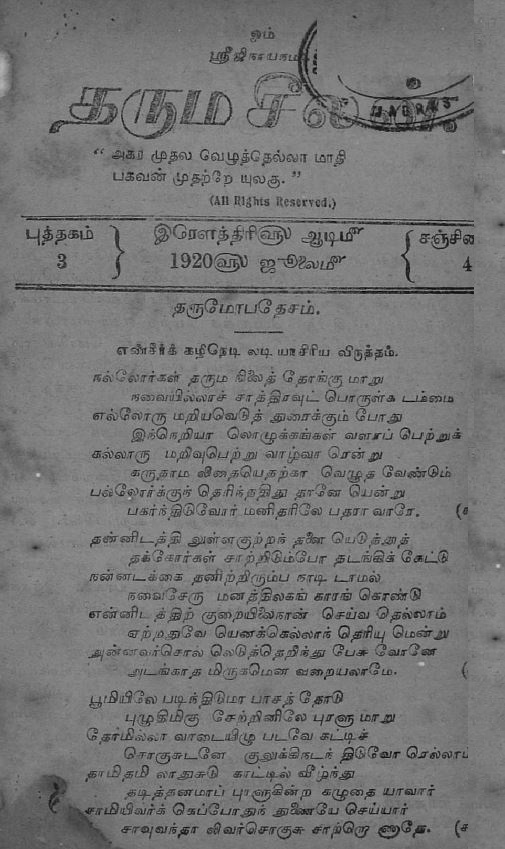 ஓம்
ஸ்ரீஜிநாயநம
தரும சீலன்.
MADRAS
“ அகர முதல வெழுத்தெல்லா மாதி
பகவன் முதற்றே யுலகு. ”
(All Rights Reserved.)
புத்தகம் இரௌத்திரி௵ ஆடி௴ சஞ்சிகை
3 1920௵ ஜூலை௴ 4
தருமோபதேசம்.
எண்சீர்க் கழிநெடி லடி யாசிரிய விருத்தம்.
நல்லோர்கள் தரும நிலைத் தோங்கு மாறு
நவையில்லாச் சாத்திரவுட் பொருள்க டம்மை
எல்லோரு மறியவெடுத் துரைக்கும் போது
இந்நெறியா லொழுக்கங்கள் வளரப் பெற்றுக்
கல்லாரு மறிவுபெற்று வாழ்வா ரென்று
கருதாம லிதையெதற்கா வெழுத வேண்டும்
பல்லோர்க்குந் தெரிந்ததிது தானே யென்று
பகர்ந்திடுவோர் மனிதரிலே பதரா வாரே.
தன்னிடத்தி லுள்ளகுற்றந் தனை யெடுத்துத்
தக்கோர்கள் சாற்றிடும்போ தடங்கிக் கேட்டு
நன்னடக்கை தனிற்றிரும்ப நாடி டாமல்
நவைசேரு மனத்திலகங் காரங் கொண்டு
என்னிடத்திற் குறையிலைநான் செய்வ தெல்லாம்
ஏற்றதுவே யெனக்கெல்லாந் தெரியு மென்று
அன்னவர்சொல் லெடுத்தெறிந்து பேசு வோனே
அடங்காத மிருகமென வறையலாமே.
பூமியிலே படிந்திடுமா பாசத் தோடு
புழுதிமிகு சேற்றினிலே புரளு மாறு
தேர்மில்லா வாடையிழு படவே கட்டிச்
சொகுசுடனே குலுக்கிநடந் திடுவோ ரெல்லாம்
தாமிதமி லாதுசுடு காட்டில் வீழ்ந்து
தடித்தனமாப் புரளுகின்ற கழுதை யாவார்
சாமியிவர்க் கெப்போதுந் துணையே செய்யார்
சாவுவந்தா லிவர்சொகுசு சாற்றொ ணாதே.